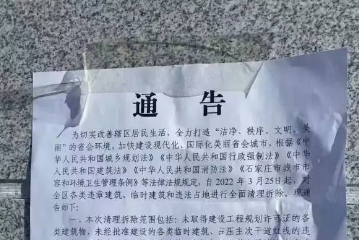 通 告
为切实改善辖区居民生活，全力打造“洁净、秩序、文明、美
丽”的省会环境，加快建设现代化、国际化美丽省会城市，根据《中
华人民共和国城乡规划法》《中华人民共和国行政强制法》《中华
人民共和国建筑法》《中华人民共和国消防法》《石家庄市城市市
容和环境卫生管理条例》等法律法规规定，自 2022 年 3 月 25 日起，对
全区各类违章建筑、临时建筑和违法占地进行全面清理拆除。现通
告如下：
一、本次清理拆除范围包括：未取得建设工程规划许可证的各
类建筑物，未经批准建设的各类临时建筑、